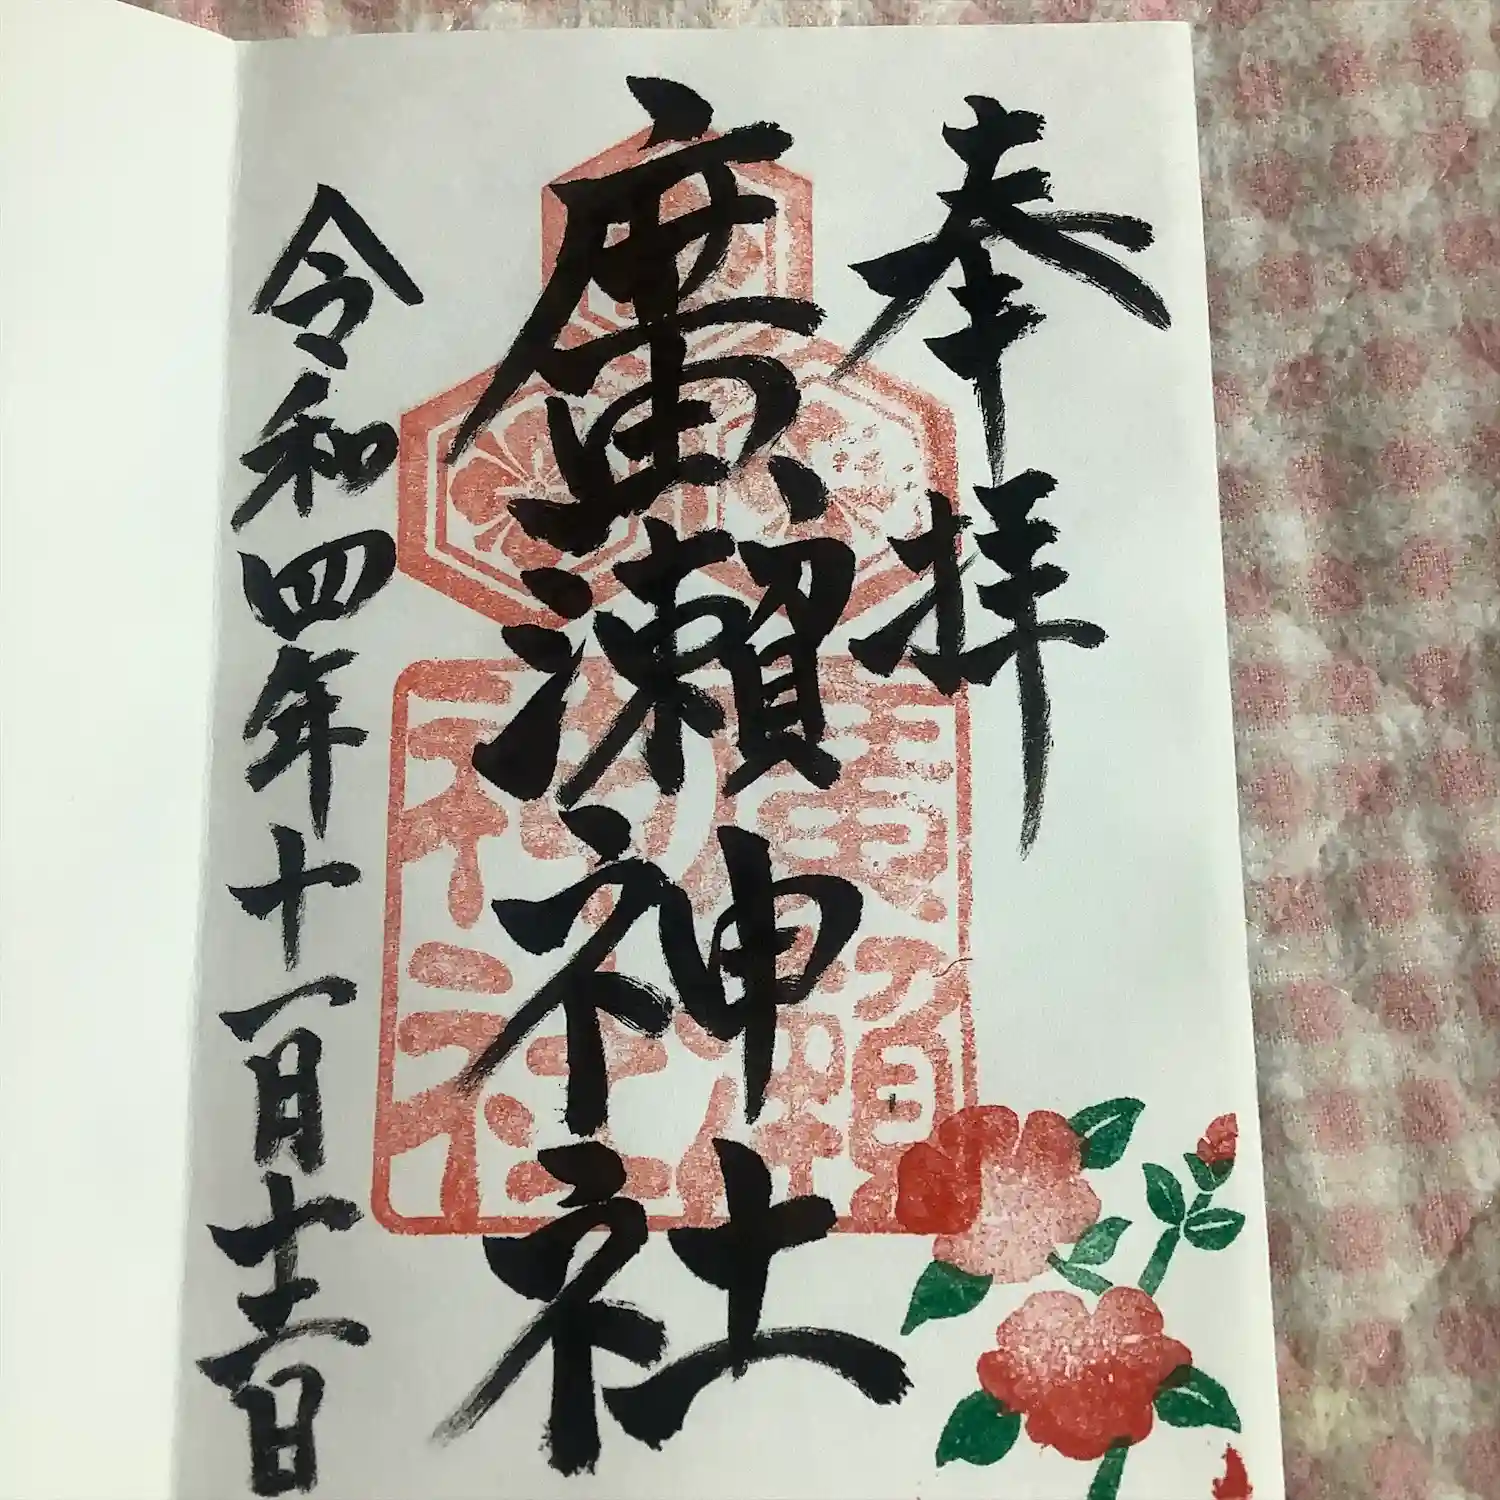 奉拝
廣瀬神社
令和四年十一月十二日
廣瀬
神社